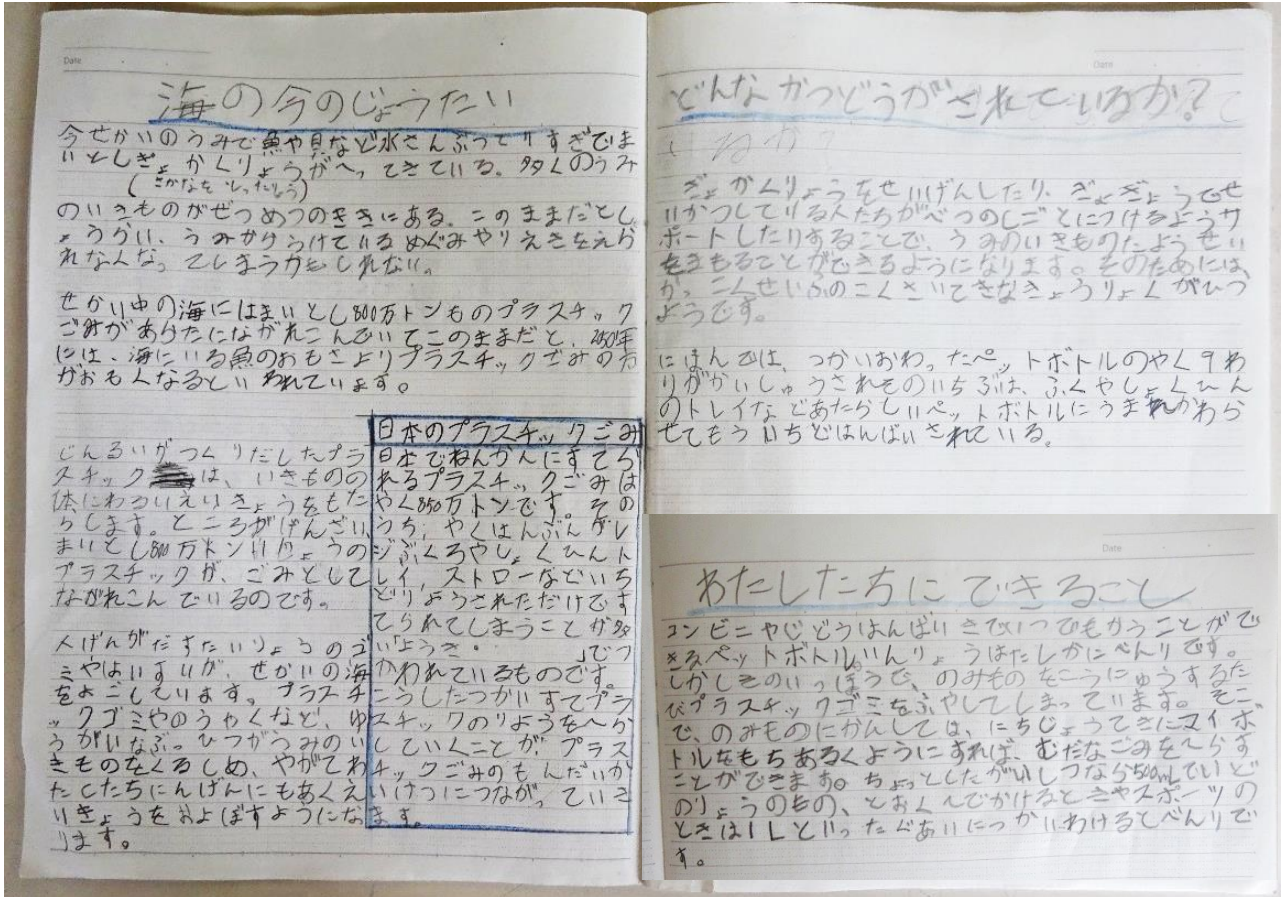 Date
海の今のじょうたい
今せかいのうみで魚や貝など水さんぶつとりすぎでま
いとしぎょかくりょうがへってきている。多くのうみ
(さかなをとったりょう)
のいきものがぜつめつのききにある。このままだとし
ょうらい、うみからうけているめぐみやりえきをえら
れなくなってしまうかもしれない。
せかい中の海にはまいとし800万トンものプラスチック
ごみがあらたにながれこんでいてこのままだと、2050年
には、海にいる魚のおもさよりプラスチックごみの方
がおもくなるといわれています。
じんるいがつくりだしたプラ
スチックは、いきものの
体にわるいえいきょうをもた
らします。ところがげんざい、
まいとし800万トンいりょうの
プラスチックが、ごみとして
ながれこんでいるのです。
人げんがだすたいりょうのゴ
ミやはいすいが、せかいの海
をよごしています。プラスチ
ックゴミやのうやくなど、ゆ
うがいなぶっひつがうみのい
きものをくるしめ、やがてわ
たしたちにんげんにもあくえ
いきょうをおよぼすようにな
ります。
日本のプラスチックごみ
日本でねんかんにすてら
れるプラスチックごみは
やく850万トンです。その
うち、やくはんぶんがレ
ジぶくろやしょくひんト
レイ、ストローなどいち
どりようされただけです
てられてしまうことが多
い「ようき・　　」でつ
かわれているものです。
こうしたつかいすてプラ
スチックのりようをへら
していくことが、プラス
チックごみのもんだいか
いけつにつながっていき
ます。
Date
どんなかつどうがされているか?
ぎょかくりょうをせいげんしたり、ぎょぎょうでせ
いかつしている人たちがべつのしごとにつけるようサ
ポートしたりすることで、うみのいきものたようせい
をまもることができるようになります。そのためには、
かっこくせいふのこくさいてきなきょうりょくがひつ
ようです。
にほんでは、つかいおわったペットボトルのやく9わ
りがかいしゅうされそのいちぶは、ふくやしょくひん
のトレイなどあたらしいペットボトルにうまれかわら
せてもういちどはんばいされている。
Date
わたしたちにできること
コンビニやじどうはんばいきでいつでもかうことがで
きるペットボトルいんりょうはたしかにべんりです。
しかしそのいっぽうで、のみものをこうにゅうするた
びプラスチックゴミをふやしてしまっています。そこ
で、のみものにかんしては、にちじょうてきにマイボ
トルをもちあるくようにすれば、むだなごみをへらす
ことができます。ちょっとしたがいしつなら500mLていど
のりょうのもの、とおくへでかけるときやスポーツの
ときは1Lといったぐあいにつかいわけるとべんりで
す。